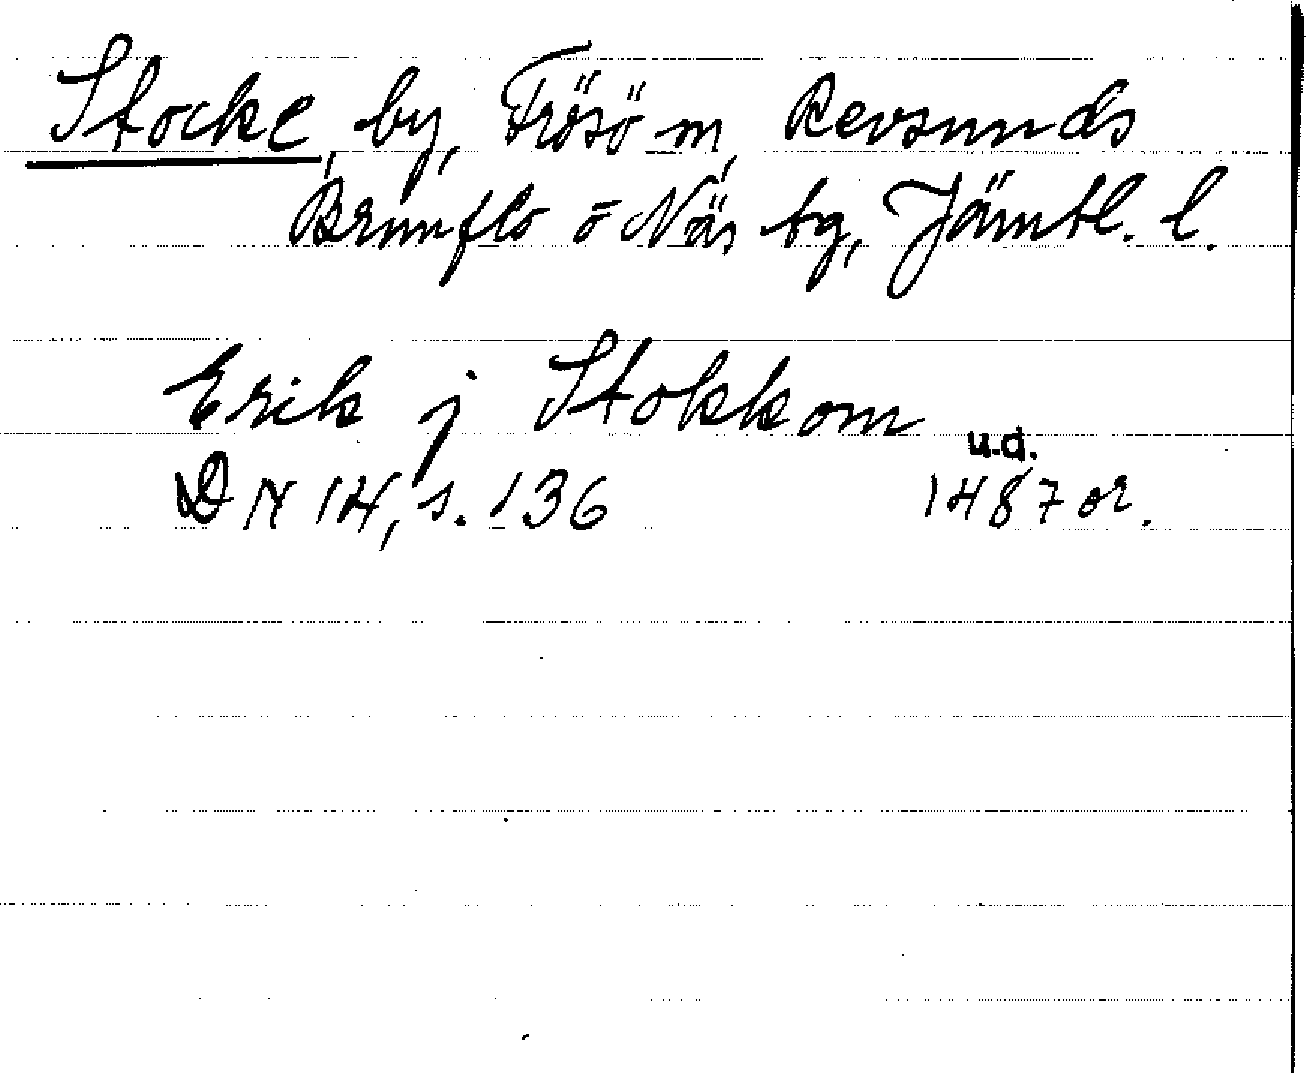 Stocke, by, Frösö sn, Revsunds
Brunflo o Näs tg, Jämtl. l.
Erik j Stokkom
u.d.
DN 14, s. 136 1487 or.